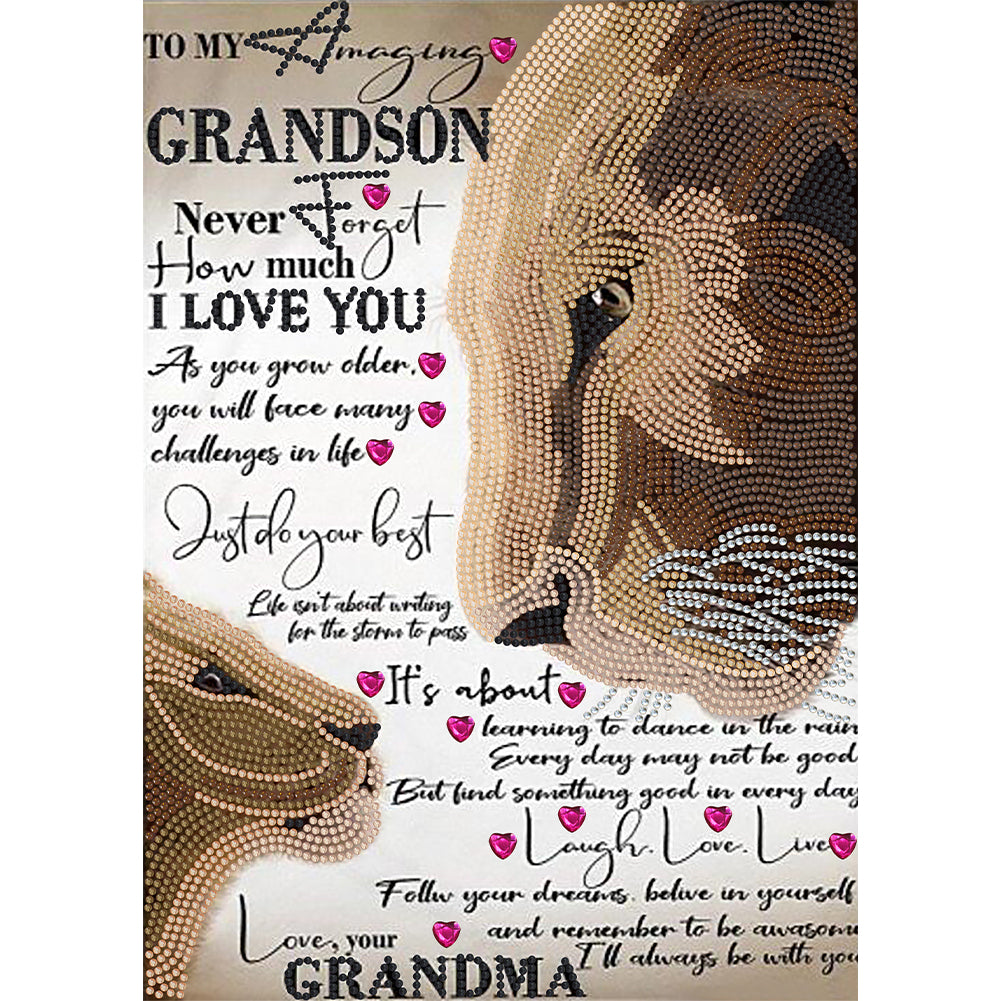 TO MY Amazing
GRANDSON
Never Forget
How much
I LOVE YOU
As you grow older,
you will face many
challenges in life
Just do your best
Life isn't about writing
for the storm to pass
It's about
learning to dance in the rain
Every day may not be good
But find something good in every day
Laugh. Love. Live
Follw your dreams, belive in yourself
and remember to be awasom
I'll always be with you
Love, your
GRANDMA